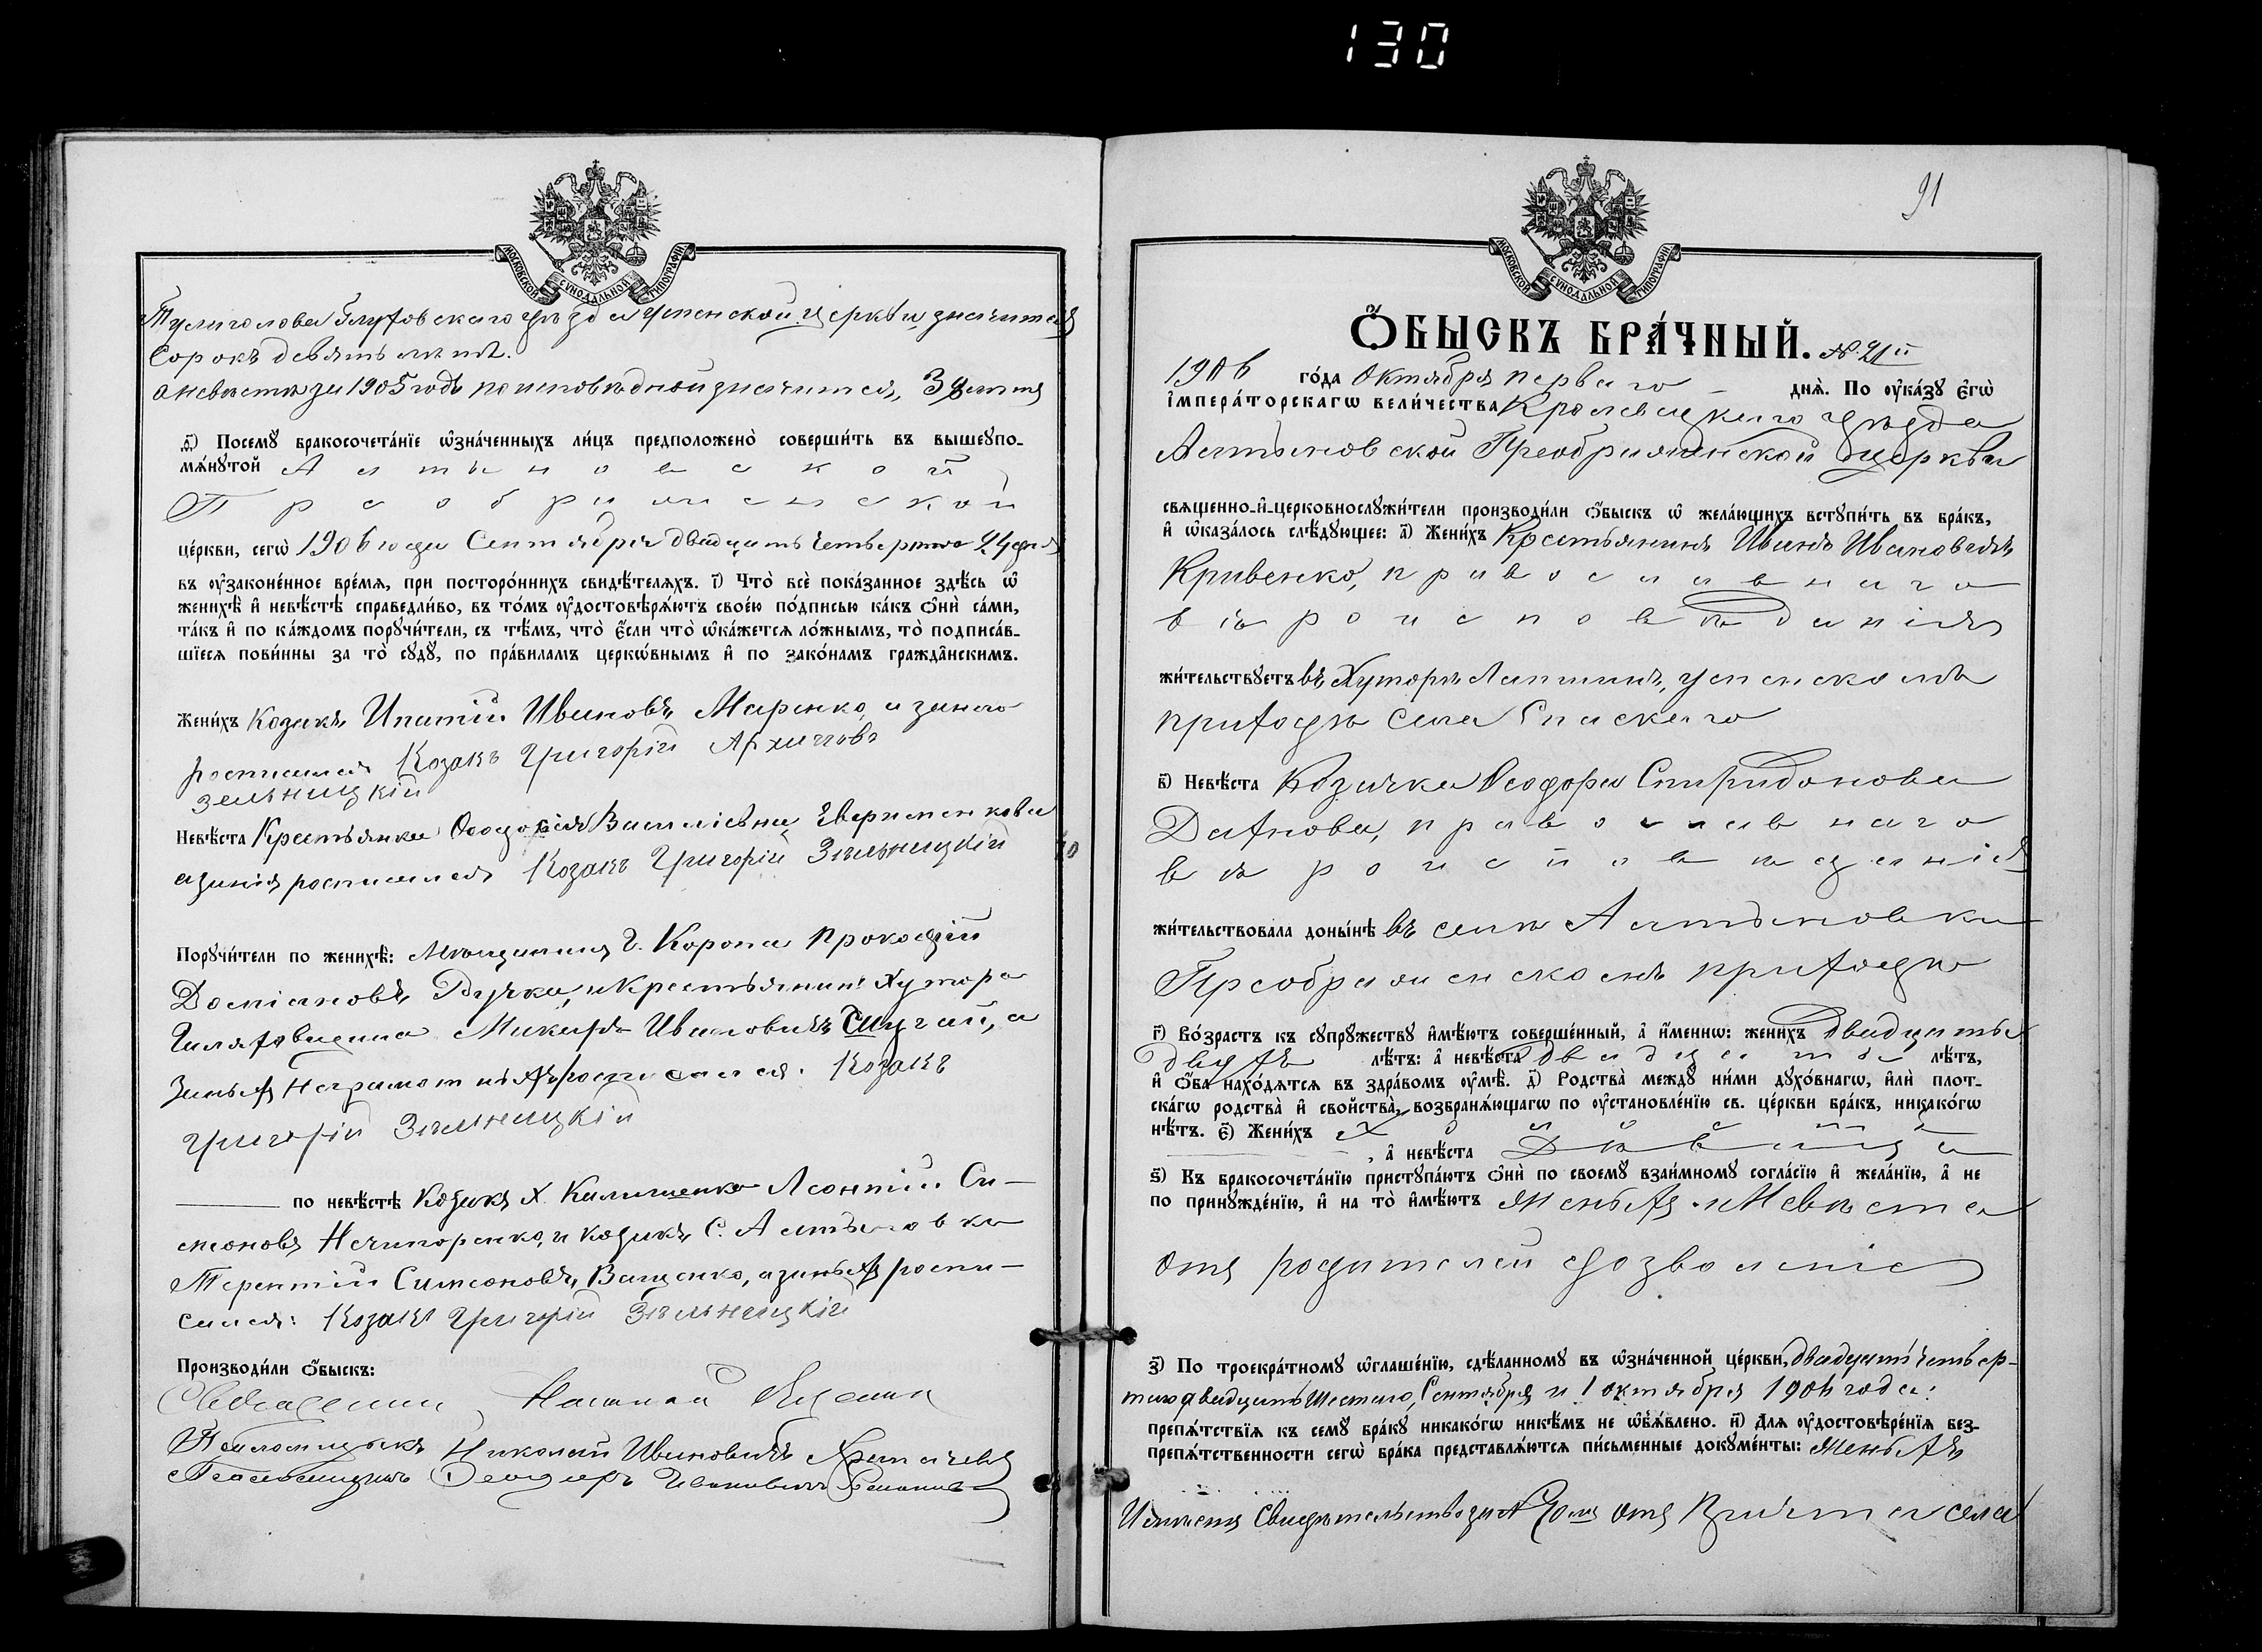 130
МОСКОВСКОЙ СѴНОДАЛЬНОЙ ТИПОГРАФІИ
Тулиголова Глуховскаго уѣзда Успенской церкви, значится
сорокъ девять лѣтъ.
а невѣста за 1905 годъ по исповѣдной значится,
д҃) Посемꙋ̀ бракосочета́нїе ѡ҆зна́ченныхъ ли́цъ предположено̀ соверши́ть въ вышеупо-
мѧ́нꙋтой Алтыновской
Преображенской
це́ркви, сегѡ̀ 1906 года Сентября двадцать четвертаго 24 дня
въ ᲂу҆законе́нное вре́мѧ, при посторо́ннихъ свидѣ́телѧхъ. і҃) Что̀ всѐ пока́занное здѣ́сь ѡ҆
женихѣ̀ и҆ невѣ́стѣ справедли́во, въ то́мъ ᲂу҆достовѣрѧ́ютъ свое́ю по́дписью ка́къ ѻ҆нѝ са́ми,
та́къ и҆ по ка́ждомъ порꙋчи́тели, съ тѣ́мъ, что̀ є҆́сли что̀ ѡ҆ка́жетсѧ ло́жнымъ, то̀ подписа́в-
шїесѧ пови́нны за то̀ сꙋдꙋ̀, по пра́виламъ церкѡ́внымъ и҆ по зако́намъ гражда̂нскимъ.
Жени́хъ Козакъ Ипатій Ивановъ Маренко, а занего
росписался Козакъ Григорій Архиповъ
Зѣльницкій
Невѣ́ста Крестьянка Ѳеодосія Васильевна
а занія росписался Козакъ Григорій Зѣльницкій
Порꙋчи́тели по женихѣ̀: Мѣщанинъ г. Коропа Прокофій
Даміановъ и Крестьянинъ хутора
Никифоръ Ивановичъ а
занихъ неграмотныхъ росписался. Козакъ
Григорій Зѣльницкій
по невѣ́стѣ Козакъ х. Каличенко Леонтій Си-
меоновъ Нечипоренко, и козакъ С. Алтыновки
Терентій Симеоновъ Ващенко, а занихъ роспи-
сался: Козакъ Григорій Зѣльницкій
Производи́ли ѻ҆́быскъ:
Священникъ
Псаломщикъ Николай Ивановичъ
Псаломщикъ Ѳеодоръ Ивановичъ
МОСКОВСКОЙ СѴНОДАЛЬНОЙ ТИПОГРАФІИ
91
Ѻ҆́БЫСКЪ БРА́ЧНЫЙ. № 21й
1906 го́да Октября перваго днѧ̀. По ᲂу҆ка́зꙋ є҆гѡ̀
і҆мпера́торскагѡ вели́чества Кролевецкаго уѣзда
Алтыновской Преображенской Церкви
свѧщенно-и҆-церковнослꙋжи́тели производи́ли ѻ҆́быскъ ѡ҆ жела́ющихъ встꙋпи́ть въ бра́къ,
и҆ ѡ҆каза́лось слѣ́дꙋющее: а҃) Жени́хъ Крестьянинъ Иванъ Ивановичъ
Кривенко, православнаго
вѣроисповѣданія
жи́тельствꙋетъ въ Хуторѣ Лапшинъ, Успенскомъ
приходѣ села Спаскаго
в҃) Невѣ́ста Козачка Ѳеодора Спиридонова
Дахнова, православнаго
вѣроисповѣданія
жи́тельствовала доны́нѣ въ селѣ Алтыновки
Преображенскомъ приходѣ
г҃) Во́зрастъ къ сꙋпрꙋ́жествꙋ и҆мѣ́ютъ соверше́нный, а҆ и҆́меннѡ: жени́хъ двадцать
двухъ лѣ́тъ: а҆ невѣ́ста двадцать лѣ́тъ,
и҆ ѻ҆́ба нахо́дѧтсѧ въ здра́вомъ ᲂу҆мѣ̀. д҃) Родства̀ междꙋ̀ ни́ми дꙋхо́внагѡ, и҆лѝ плот-
ска́гѡ родства̀ и҆ сво́йства̀, возбранѧ́ющагѡ по ᲂу҆становле́нїю св. це́ркви бра́къ, никако́гѡ
нѣ́тъ. є҃) Жени́хъ Х , а҆ невѣ́ста Дѣвица
ѕ҃) Къ бракосочета́нїю пристꙋпа́ютъ ѻ҆нѝ по своемꙋ̀ взаи́мномꙋ согла́сїю и҆ жела́нїю, а҆ не
по принꙋжде́нїю, и҆ на то̀ и҆мѣ́ютъ Женихъ и Невѣста
отъ родителей дозволеніе
з҃) По троекра́тномꙋ ѡ҆глаше́нїю, сдѣ́ланномꙋ въ ѡ҆зна́ченной це́ркви, двадцать четвер-
таго двадцать шестаго, Сентября и 1 октября 1906 года:
препѧ́тствїѧ къ семꙋ̀ бра́кꙋ никако́гѡ никѣ́мъ не ѡ҆б̾ѧ́влено. и҃) Длѧ ᲂу҆достовѣре́нїѧ без-
препѧ́тственности сегѡ̀ бра́ка представлѧ́ютсѧ пи́сьменные докꙋме́нты: Женихъ
Имѣетъ Свидѣтельство за № отъ Причта села